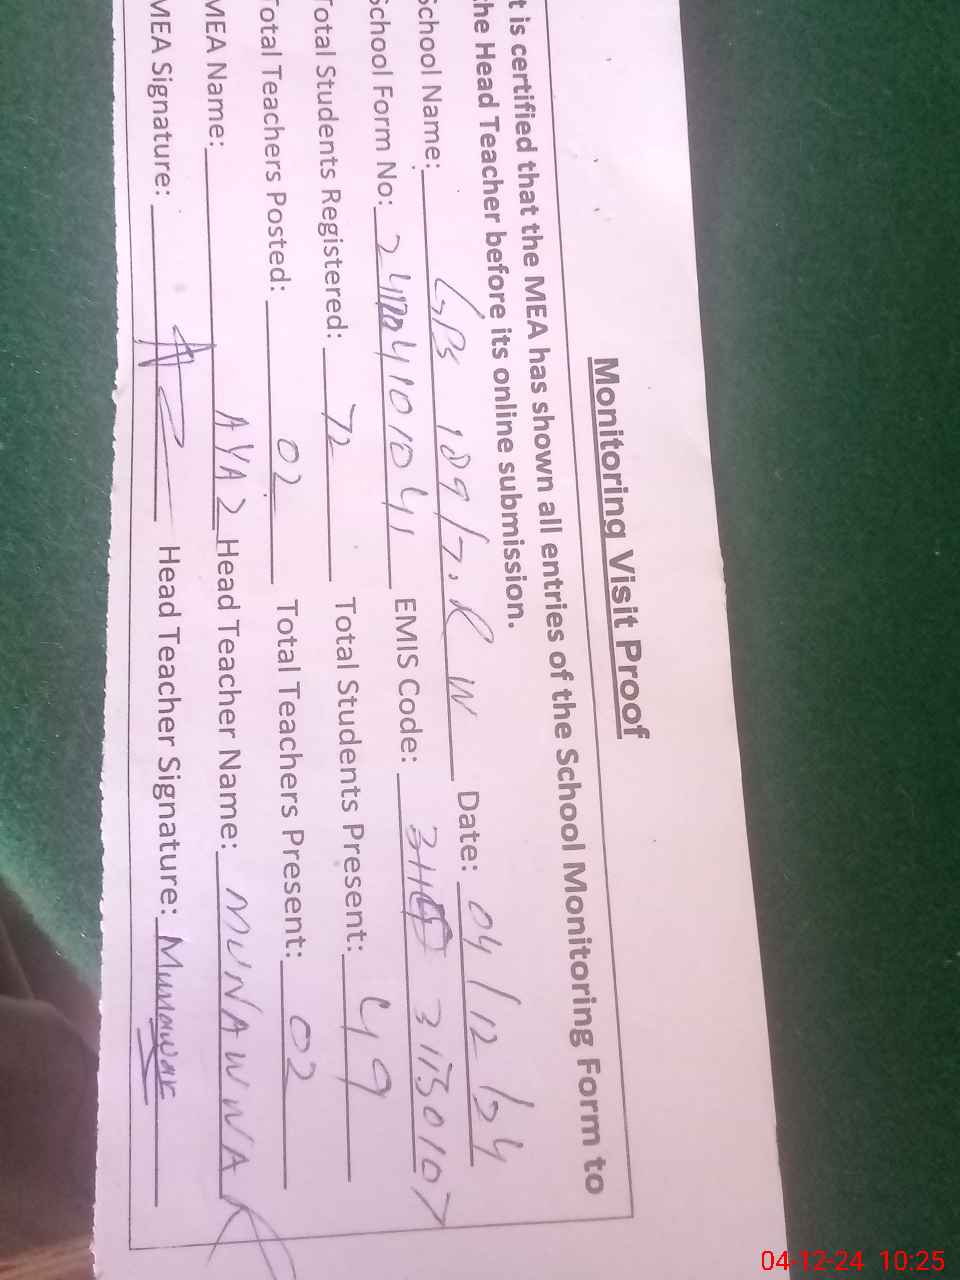 Monitoring Visit Proof
t is certified that the MEA has shown all entries of the School Monitoring Form to
the Head Teacher before its online submission.
School Name: GPS 189/7.R W Date: 04/12/24
School Form No: 4101041 EMIS Code: 31130107
Total Students Registered: 72 Total Students Present: 49
Total Teachers Posted: 02 Total Teachers Present: 02
MEA Name: AYAZ Head Teacher Name: MUNAWWAR
MEA Signature: Head Teacher Signature: Munawar
04-12-24 10:25